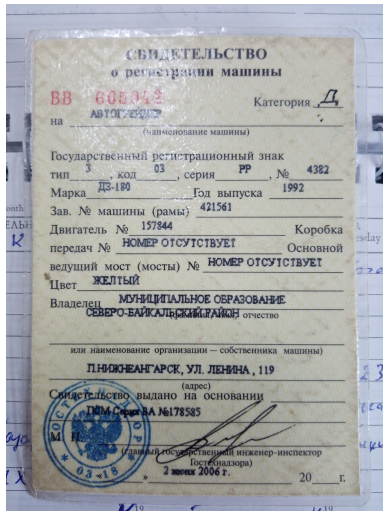 СВИДЕТЕЛЬСТВО
о регистрации машины
ВВ 605942 Категория Д
на АВТОГРЕЙДЕР
(наименование машины)
Государственный регистрационный знак
тип 3, код 03, серия РР, № 4382
Марка ДЗ-180 Год выпуска 1992
Зав. № машины (рамы) 421561
Двигатель № 157844 Коробка
передач № НОМЕР ОТСУТСТВУЕТ Основной
ведущий мост (мосты) № НОМЕР ОТСУТСТВУЕТ
Цвет ЖЕЛТЫЙ
Владелец МУНИЦИПАЛЬНОЕ ОБРАЗОВАНИЕ
СЕВЕРО-БАЙКАЛЬСКИЙ РАЙОН отчество
или наименование организации — собственника машины)
П.НИЖНЕАНГАРСК, УЛ. ЛЕНИНА , 119
(адрес)
Свидетельство выдано на основании
ПСМ Серия ВА №178585
М П
(главный государственный инженер-инспектор
Гостехнадзора)
" 2 июня 2006 г. 20 г.
ГОСТЕХНАДЗОР
03-18